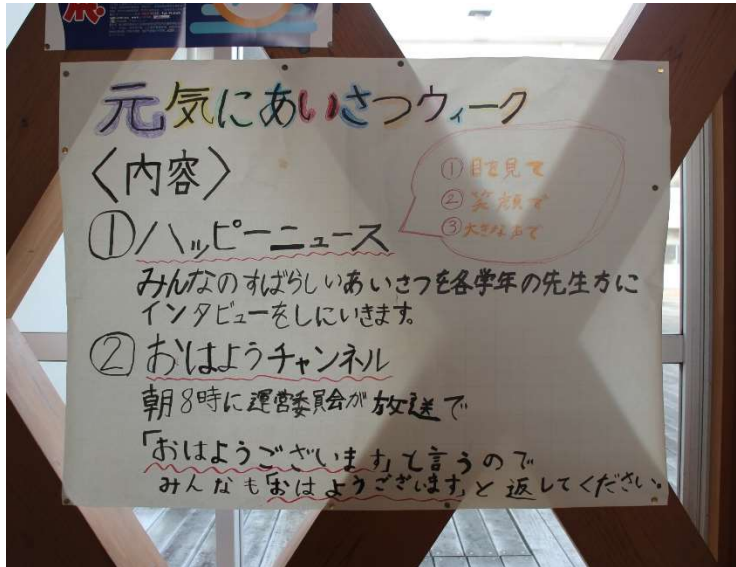 展
元気にあいさつウィーク
〈内容〉
①目を見て
②笑顔で
③大きな声で
①ハッピーニュース
みんなのすばらしいあいさつを各学年の先生方に
インタビューをしにいきます。
②おはようチャンネル
朝8時に運営委員会が放送で
「おはようございます」と言うので
みんなも「おはようございます」と返してください。